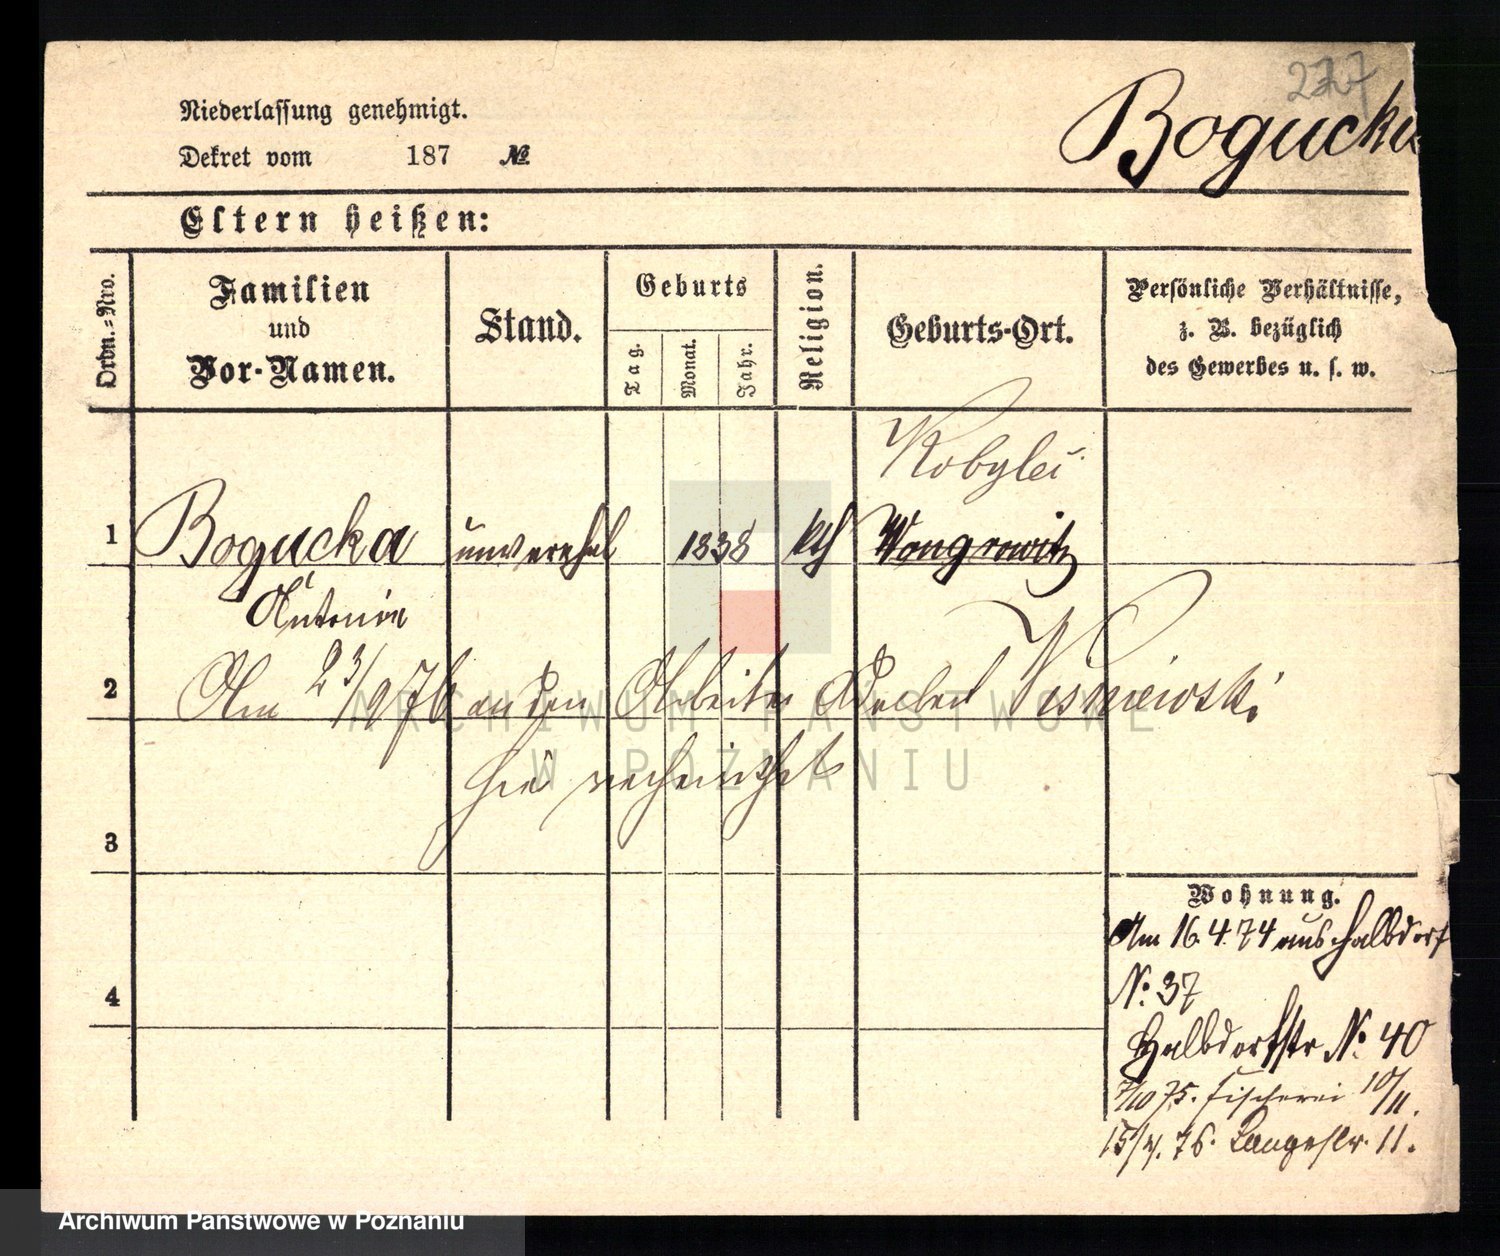 277
Niederlassung genehmigt.
Dekret vom 187 №
Bogucka
Eltern heißen:
Ordn.=Nro.
Familien und Vor-Namen.
Stand.
Geburts
Tag.
Monat.
Jahr.
Religion.
Geburts-Ort.
Persönliche Verhältnisse,
z. B. bezüglich
des Gewerbes u. s. w.
Kobylec
1 Bogucka unverehel 1838 kth Wongrowitz
Antonie
2 Am 23/9 76 an den Arbeiter Adalbert Wisniewski
hie verheirathet
3
4
Wohnung.
Am 16.4.74 aus Halbdorf
No. 37
Halbdorfstr No. 40
7/10 75. Fischerei 10/11.
15/4. 76. Langestr. 11.
ARCHIWUM PAŃSTWOWE
W POZNANIU
Archiwum Państwowe w Poznaniu